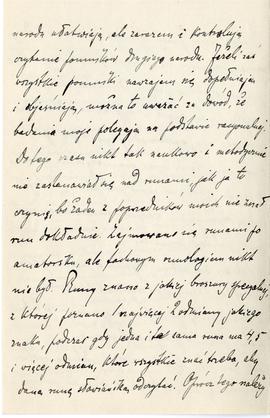 narodu ułatwiają, ale zarazem i kontrolują
czytanie pomników drugiego narodu. Jeżeli zaś
wszystkie pomniki nawzajem się dopełniają
i objaśniają, można to uważać za dowód, że
badania moje polegają na podstawie racyonalnej.
Do tego czasu nikt tak naukowo i metodycznie
nie zastanawiał się nad runami, jak ja to
czynię, bo żaden z poprzedników moich nie znał
run dokładnie. Zajmowano się runami po
amatorsku, ale fachowym runologiem nikt
nie był. Runy znano z jakiej broszury specyalnej,
z której poznano najwięcej 2 odmiany jakiegoś
znaku, podczas gdy jedna i ta sama runa ma 4, 5
i więcej odmian, które wszystkie znać trzeba, aby
daną runę słowiańską odczytać. Oprócz tego należy